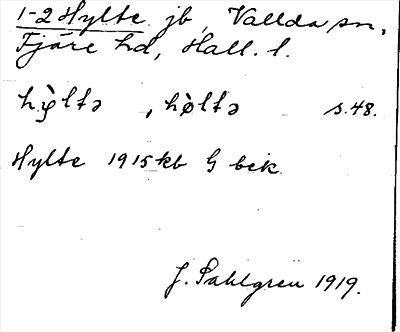 1-2 Hylte jb, Vallda sn,
Fjäre hd, Hall. l.
hỳltə , hø̀ltə s. 48.
Hylte 1915 kb G bek
J. Sahlgren 1919.